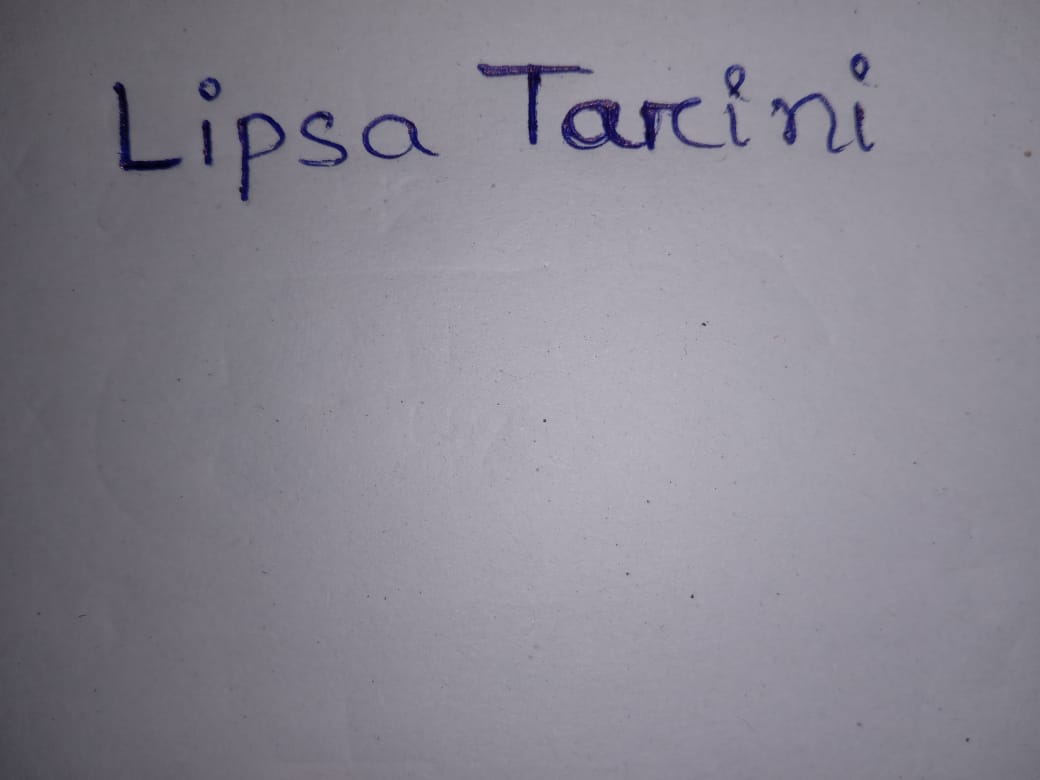 Lipsa Tarini